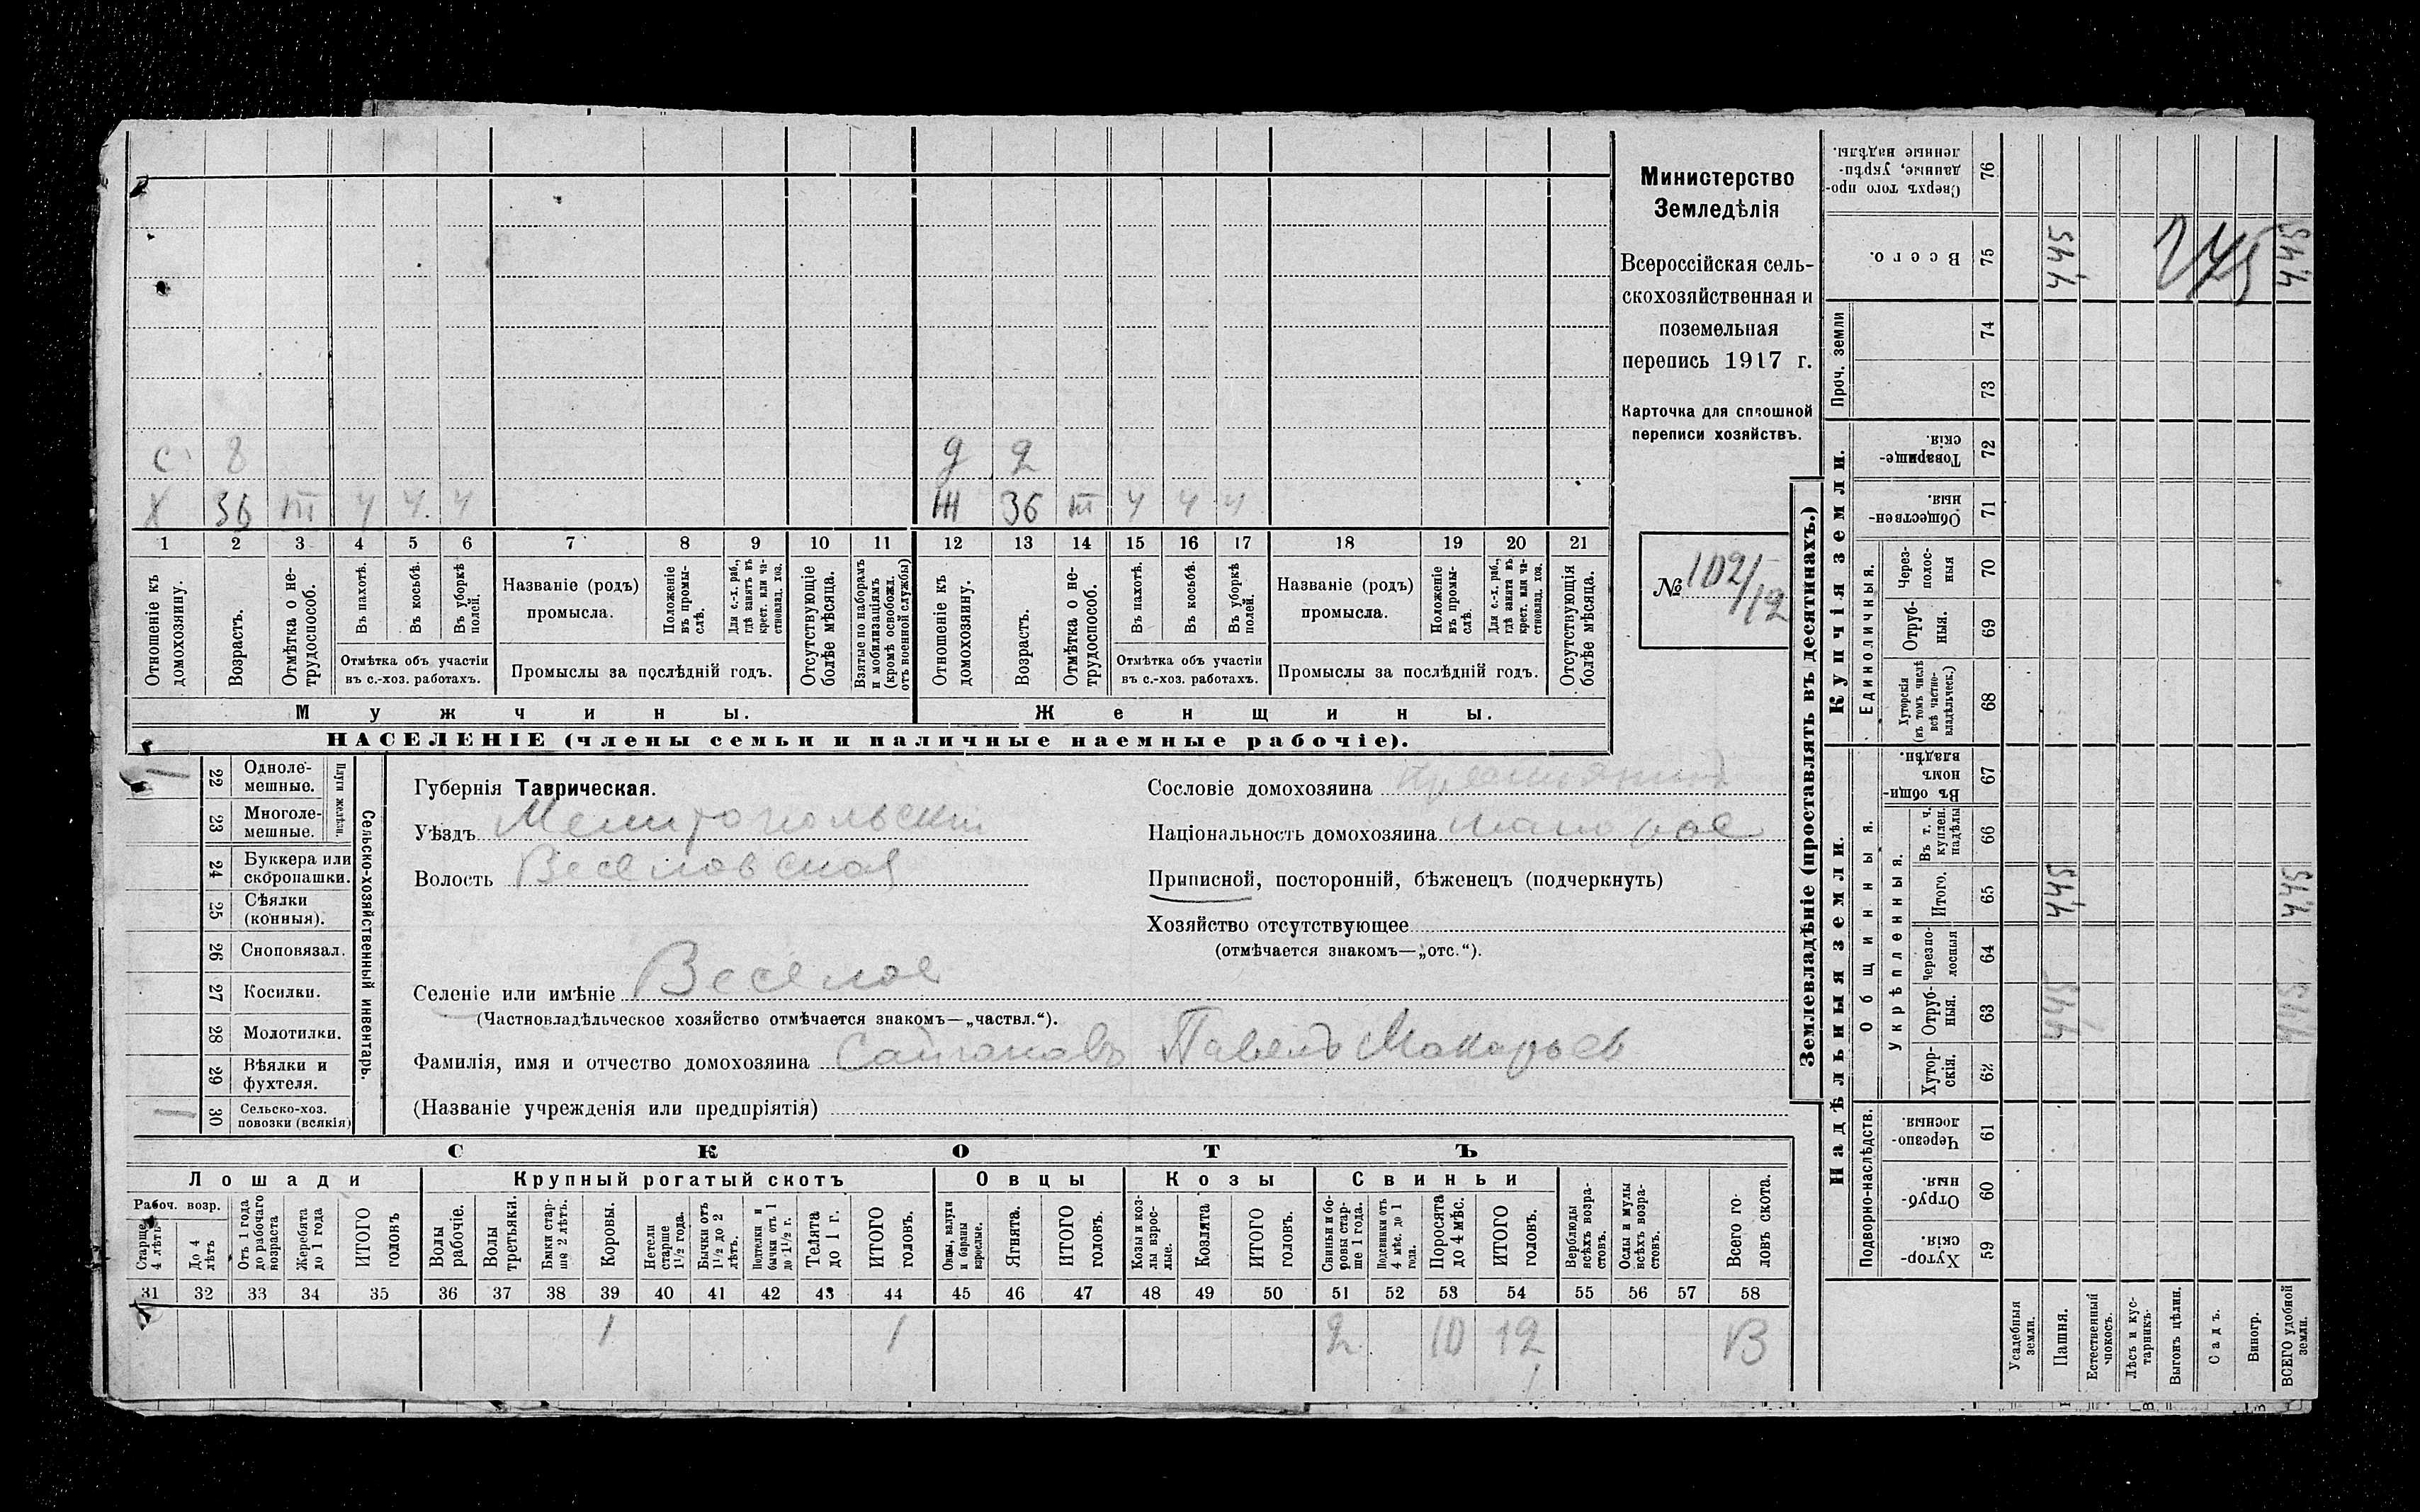 С 8 Д 2
Х 36 ПТ Ч Ч Ч Ж 36 ПТ Ч Ч Ч
1 2 3 4 5 6 7 8 9 10 11 12 13 14 15 16 17 18 19 20 21
Отношеніе къ домохозяину.
Возрастъ.
Отмѣтка о не-трудоспособ.
Въ пахотѣ.
Въ косьбѣ.
Въ уборкѣ полей.
Отмѣтка объ участіи
въ с.-хоз. работахъ.
Названіе (родъ)
промысла.
Положеніе въ промы-слѣ.
Для с.-х. раб., гдѣ занятъ въ крест. или ча-стновлад. хоз.
Промыслы за послѣдній годъ.
Отсутствующіе болѣе мѣсяца.
Взятые по наборамъ и мобилизаціямъ (кромѣ освобожд. отъ военной службы)
Отношеніе къ домохозяину.
Возрастъ.
Отмѣтка о не-трудоспособ.
Въ пахотѣ.
Въ косьбѣ.
Въ уборкѣ полей.
Отмѣтка объ участіи
въ с.-хоз. работахъ.
Названіе (родъ)
промысла.
Положеніе въ промы-слѣ.
Для с.-х. раб., гдѣ занята въ крест. или ча-стновлад. хоз.
Промыслы за послѣдній годъ.
Отсутствующія болѣе мѣсяца.
Мужчины. Женщины.
НАСЕЛЕНІЕ (члены семьи и наличные наемные рабочіе).
Министерство
Земледѣлія
Всероссійская сель-
скохозяйственная и
поземельная
перепись 1917 г.
Карточка для сплошной
переписи хозяйствъ.
№ 102/12
Сельско-хозяйственный инвентарь.
Плуги желѣзн.
1 22 Одноле-мешные.
23 Многоле-мешные.
24 Буккера или скоропашки.
25 Сѣялки (конныя).
26 Сноповязал.
27 Косилки.
28 Молотилки.
29 Вѣялки и фухтеля.
1 30 Сельско-хоз. повозки (всякія)
Губернія Таврическая.
Уѣздъ Мелитопольскій
Волость Веселовская
Сословіе домохозяина крестьянинъ
Національность домохозяина
Приписной, посторонній, бѣженецъ (подчеркнуть)
Хозяйство отсутствующее
(отмѣчается знакомъ—„отс.“).
Селеніе или имѣніе Веселое
(Частновладѣльческое хозяйство отмѣчается знакомъ—„частвл.“).
Фамилія, имя и отчество домохозяина Павелъ Макарьев
(Названіе учрежденія или предпріятія)
СКОТЪ
Лошади Крупный рогатый скотъ Овцы Козы Свиньи
Рабоч. возр.
Старше 4 лѣтъ
До 4 лѣтъ
Отъ 1 года до рабочаго возраста
Жеребята до 1 года
ИТОГО головъ
Волы рабочіе.
Волы третьяки.
Быки стар-ше 2 лѣтъ.
Коровы.
Нетели старше 1½ года.
Бычки отъ 1½ до 2 лѣтъ.
Подтелки и бычки отъ 1 до 1½ г.
Телята до 1 г.
ИТОГО головъ.
Овцы, валухи и бараны взрослые.
Ягнята.
ИТОГО головъ.
Козы и коз-лы взрос-лые.
Козлята
ИТОГО головъ.
Свиньи и бо-ровы стар-ше 1 года.
Подсвинки отъ 4 мѣс. до 1 года.
Поросята до 4 мѣс.
ИТОГО головъ.
Верблюды всѣхъ возра-стовъ.
Ослы и мулы всѣхъ возра-стовъ.
Всего го-ловъ скота.
31 32 33 34 35 36 37 38 39 40 41 42 43 44 45 46 47 48 49 50 51 52 53 54 55 56 57 58
1 1 2 10 12 13
Землевладѣніе (проставлять въ десятинахъ.)
Купчія земли.
Надѣльныя земли.
Сверхъ того про-данные, укрѣп-ленные надѣлы. 76
Всего. 75 4,45 4,45
Проч. земли
74
73
Товарище-скія. 72
Обществен-ныя. 71
Единоличныя.
Через-полос-ныя 70
Отруб-ныя. 69
Хуторскія (въ томъ числѣ всѣ частно-владѣльческ.) 68
Общинныя.
Въ общин-номъ владѣн. 67
Укрѣпленныя.
Въ т. ч. куплен. надѣлы 66
Итого. 65 4,45 4,45
Черезпо-лосныя 64
Отруб-ныя. 63 4,45 4,45
Хутор-скія. 62
Подворно-наслѣдств.
Черезпо-лосныя. 61
Отруб-ныя. 60
Хутор-скія. 59
Усадебныя земли.
Пашня.
Естественный покосъ.
Лѣсъ и кус-тарникъ.
Выгонъ цѣлин.
Садъ.
Виногр.
ВСЕГО удобной земли.